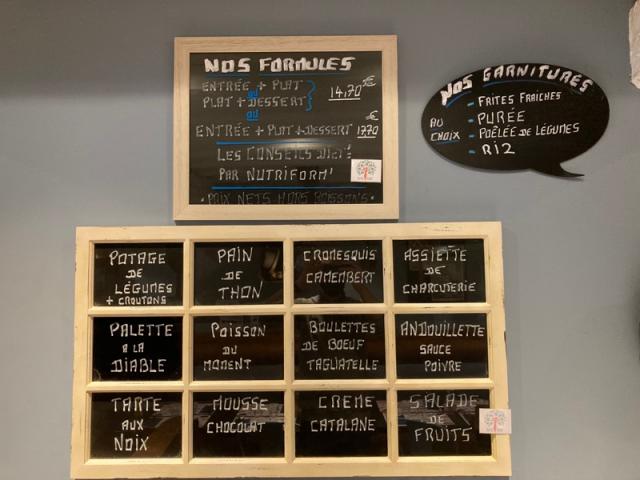 NOS FORMULES
ENTRÉE + PLAT
OU
PLAT + DESSERT
14,70€
OU
ENTRÉE + PLAT + DESSERT 17,70€
LES CONSEILS DIET:
PAR NUTRIFORM'
• PRIX NETS HORS BOISSONS •
NOS GARNITURES
AU CHOIX
- FRITES FRAÎCHES
- PURÉE
- POÊLÉE DE LÉGUMES
- RIZ
POTAGE
DE
LÉGUMES
+ CROUTONS
PAIN
DE
THON
CROMESQUIS
CAMEMBERT
ASSIETTE
DE
CHARCUTERIE
PALETTE
A LA
DIABLE
POISSON
DU
MOMENT
BOULETTES
DE BOEUF
TAGLIATELLE
ANDOUILLETTE
SAUCE
POIVRE
TARTE
AUX
NOIX
MOUSSE
CHOCOLAT
CREME
CATALANE
SALADE
DE
FRUITS